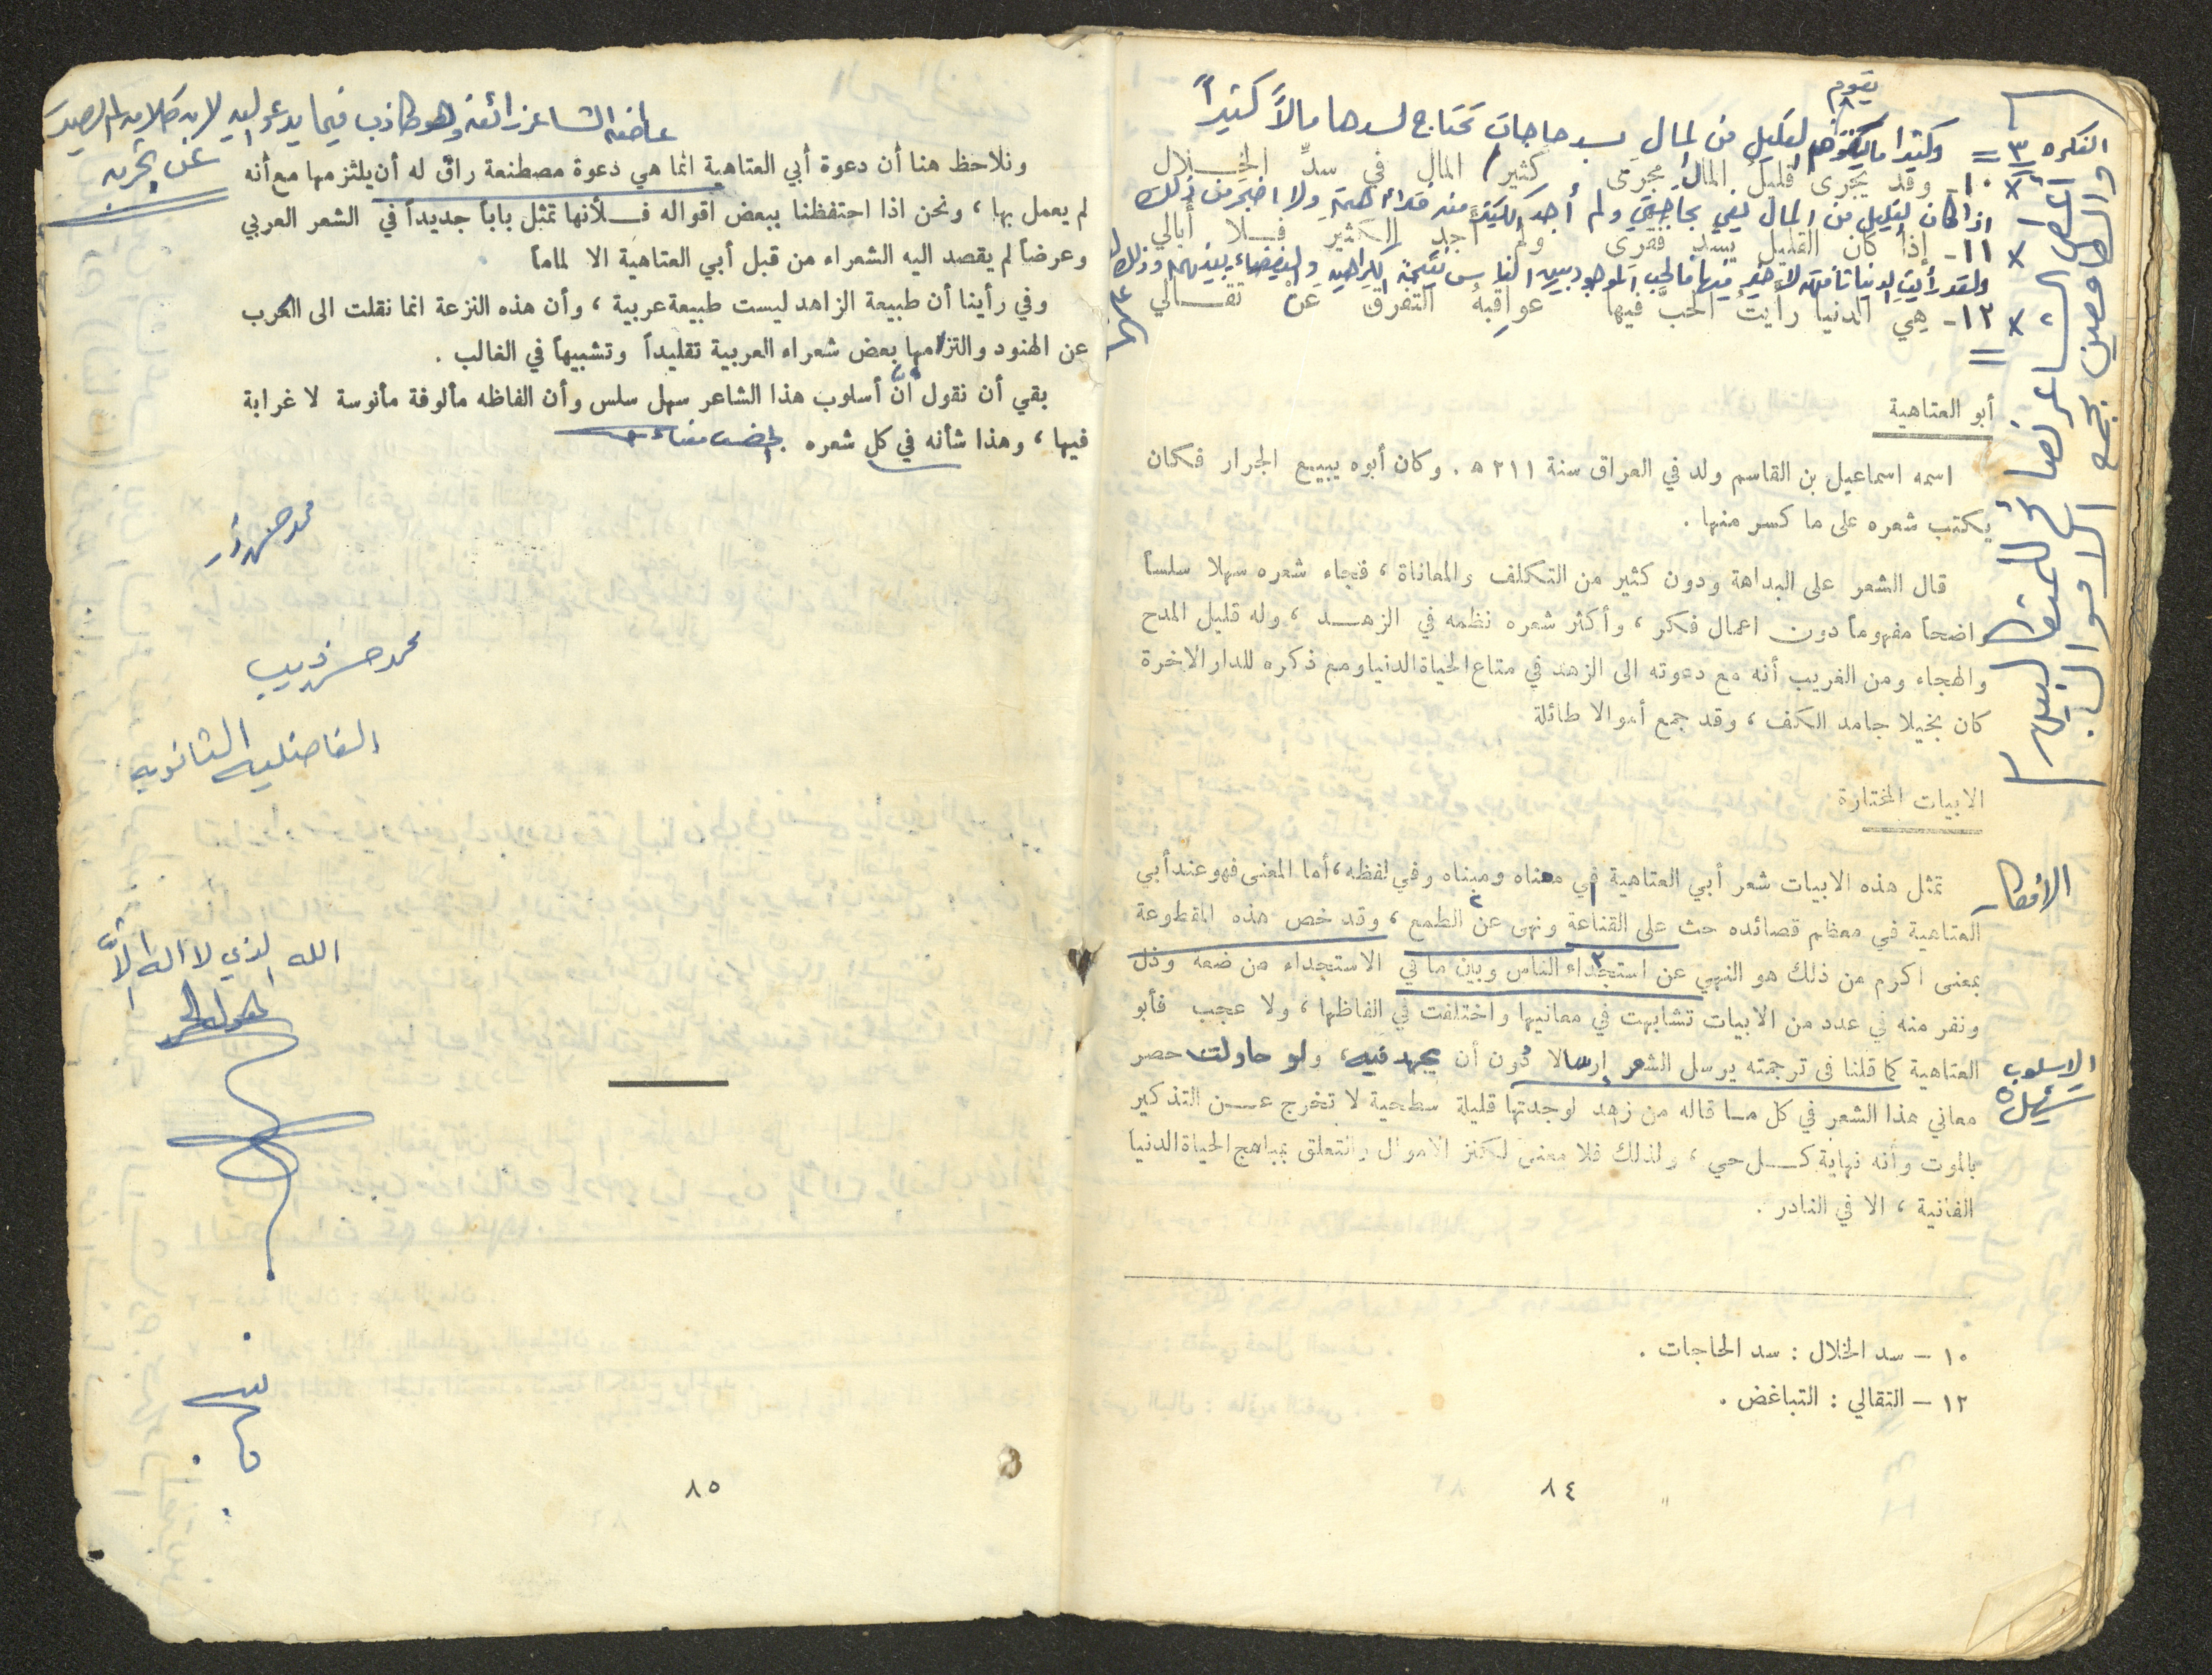 يقوم
وكثيرا ما القليل من المال بسد حاجات تحتاج لسدها مالاً كثيراً
الفكره ٣ =
١٠ - وقد يجرى قليلُ المال مجرَى كثير المال في سدِّ الخلال
اذا كان القليل من المال يفي بحاجتي ولم أجد الكثير منه فلا أهمية ولا اضجر من ذلك
١١ - إذا كان القليل يسد فقرى ولم أجد الكثير فلا أبالي
ولقد رأيت الدنيا تافهة لا خير فيها فالحب الموجود بين الناس نتيجة الكراهيه والبغضاء بينهم وذلك
١٢ - هي الدنيا رأيتُ الحبَّ فيها عواقبهُ التفرقُ عَنْ تقالي
أعطى الشاعر نصائح للمتقاتلين
والطامعين بجمع الاموال
أبو العتاهية
اسمه اسماعيل بن القاسم ولد في العراق سنة ٢١١ ه . وكان أبوه يبيع الجرار فكان
يكتب شعره على ما كسر منها .
قال الشعر على البداهة ودون كثير من التكلف والمعاناة ، فجاء شعره سهلا سلساً
واضحاً مفهوماً دون اعمال فكر ، وأكثر شعره نظمه في الزهد ، وله قليل المدح
والهجاء ومن الغريب أنه مع دعوته الى الزهد في متاع الحياة الدنيا ومع ذكره للدار الاخرة
كان بخيلا جامد الكف ، وقد جمع أموالا طائلة
الابيات المختارة
الأفكار
تمثل هذه الابيات شعر أبي العتاهية في معناه ومبناه وفي لفظه ، أما المعنى فهو عند أبي
العتاهية في معظم قصائده حث على القناعة ونهى عن الطمع ، وقد خص هذه المقطوعة
بمعنى اكرم من ذلك هو النهي عن استجداء الناس وبين ما في الاستجداء من ضعة وذل
ونفر منه في عدد من الابيات تشابهت في معانيها واختلفت في الفاظها ، ولا عجب فأبو
الاسلوب
العتاهية كما قلنا في ترجمته يرسل الشعر إرسالا دون أن يجهد فيه ، ولو حاولت حصر
سهل
معاني هذا الشعر في كل ما قاله من زهد لوجدتها قليلة سطحية لا تخرج عن التذكير
بالموت وأنه نهاية كل حي ، ولذلك فلا معنى لكنز الاموال والتعلق بمباهج الحياة الدنيا
الفانية ، الا في النادر .
١٠ – سد الخلال : سد الحاجات .
١٢ – التقالي : التباغض .
٨٤
عاطفه الشاعر زائفه وهو كاذب فيما يدعو اليه لان كلامه لم يصدر
عن تجربه
ونلاحظ هنا أن دعوة أبي العتاهية انما هي دعوة مصطنعة راق له أن يلتزمها مع أنه
لم يعمل بها ، ونحن اذا احتفظنا ببعض اقواله فلأنها تمثل باباً جديداً في الشعر العربي
وعرضاً لم يقصد اليه الشعراء من قبل أبي العتاهية الا لماماً
وفي رأينا أن طبيعة الزاهد ليست طبيعة عربية ، وأن هذه النزعة انما نقلت الى العرب
عن الهنود والتزمها بعض شعراء العربية تقليداً وتشبيهاً في الغالب .
بقي أن نقول انّ أسلوب هذا الشاعر سهل سلس وأن الفاظه مألوفة مأنوسة لا غرابة
فيها ، وهذا شأنه في كل شعره
محمد حسن
محمد حسن ذيب
الفاضليه الثانويه
الله الذي لا اله الا
٨٥